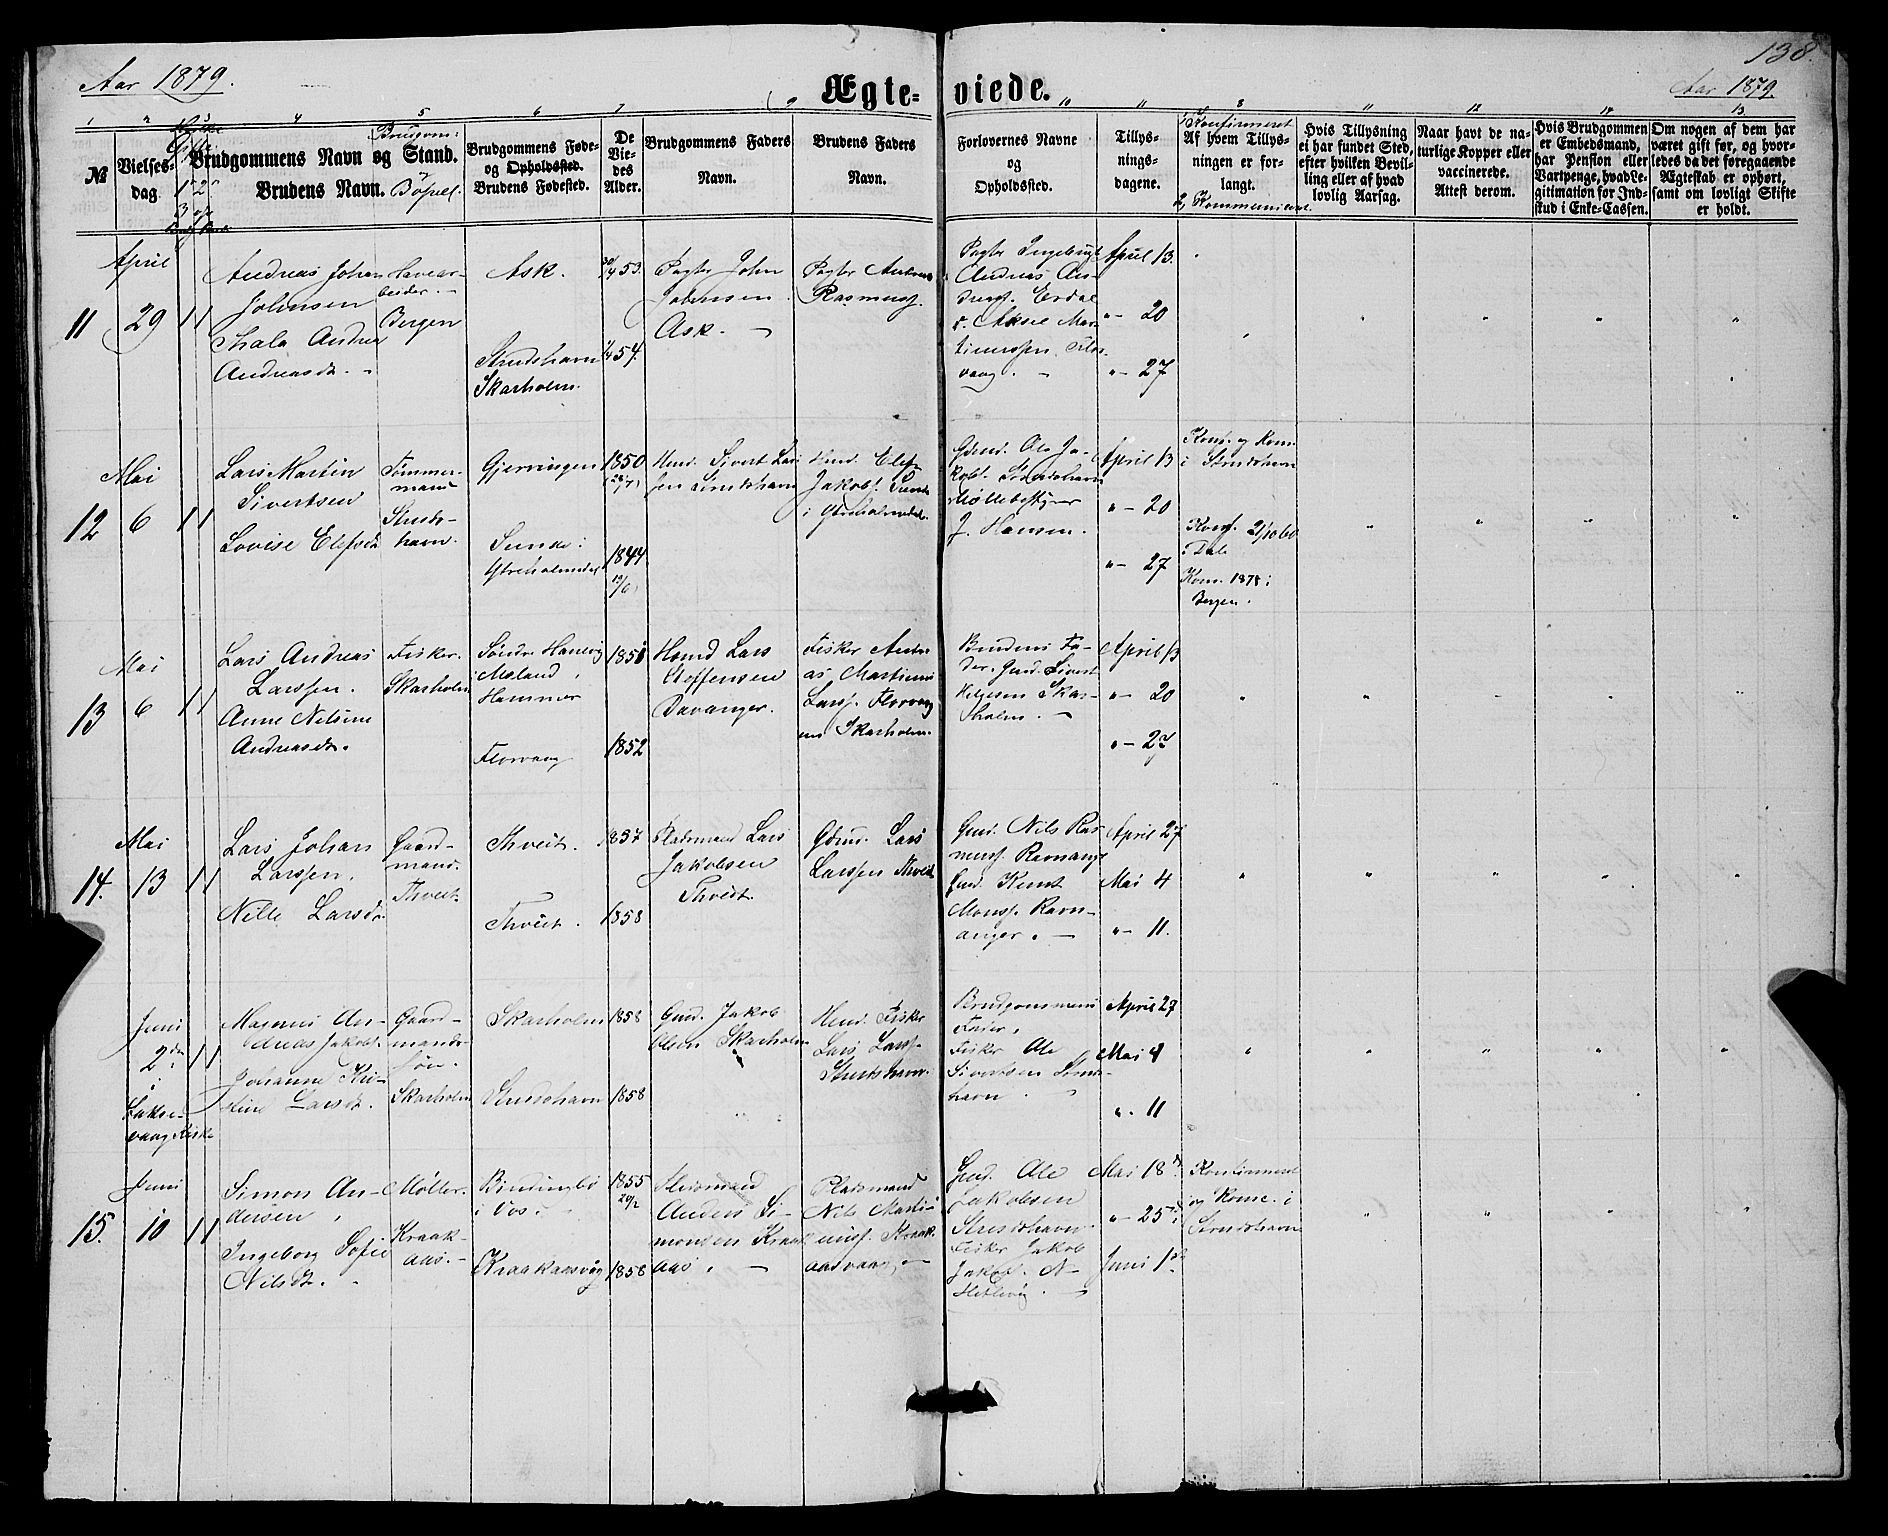 138.
Aar 1879.
Ægte-
viede.
Aar 1879.
№
Vielses-
dag
Brudgommens Navn og Stand.
Brudens Navn.
Bopæl.
Brudgommens Føde-
og Opholdssted.
Brudens Fødested.
De
Vie-
des
Alder.
Brudgommens Faders
Navn.
Brudens Faders
Navn.
Forlovernes Navne
og
Opholdssted.
Tillys-
nings-
dagene.
1, Konfirmeret
Af hvem Tillys-
ningen er for-
langt.
2, Kommuniceret
Hvis Tillysning
ei har fundet Sted,
efter hvilken Bevil-
ling eller af hvad
lovlig Aarsag.
Naar havt de na-
turlige Kopper eller
vaccinerede.
Attest derom.
Hvis Brudgommen
er Embedsmand,
har Pension eller
Vartpenge, hvad Le-
gitimation for Ind-
skud i Enke-Cassen.
Om nogen af dem har
været gift før, og hvor-
ledes da det foregaaende
Ægteskab er ophørt,
samt om lovligt Skifte
er holdt.
11
April
29
1 1
Andreas Johan
Johnsen
Andrea
Andreasdt.
Havear-
beider.
Bergen
Ask.
Strudshavn
Skarholm.
53.
54.
Pagter John
Johnsen
Ask.
Pagter Andreas
Rasmussf.
Pagter Ingebrigt
Andreas An-
Erdal
Mar-
tinussen, Flor-
vaag.
April 13.
"- 20
"- 27
12
Mai
6
1 1
Lars Martin
Sivertsen
Lovise Elefsdt
Tømmer-
mand
Struds-
havn.
Gjerningen
1850
1844
Sivert Lar-
sen Strudshavn
Elef
Jakobs.
i Ytreholmedal.
Gdmd. Ole Ja-
kobs. Strudshavn
Møllebestyrer
J. Hansen.
April 13
"- 20
"- 27
Konf. og Kom.
i Strudshavn
Konf. 21/10 60
i Dale
Kom. 1878 i
Bergen.
13
Mai
6
1 1
Lars Andreas
Larssen.
Anne Nilsine
Andreasdt.
Fisker.
Skarholm
Søndre Hanevig
Meland,
Hammer
Florvaag
1851
1852
Lars
Steffensen
Davanger.
Fisker Andre-
as Martinus
Larsf. Florvaag
nu Skarholm.
Brudens Fa-
der. Gmd. Sivert
Helgesen Skar-
holm.
April 13
"- 20
"- 27
14.
Mai
13
1 1
Lars Johan
Larssen.
Nille Larsdt.
Gaard-
mand.
Thveit.
Thveit.
Thveit.
1857
1858
Pladsmand Lars
Jakobsen
Thveit.
Gdmd. Lars
Larssen Thveit
Gmd. Nils Ras-
mussf. Ravnanger
Gmd. Knut
Monsf. Ravn-
anger.
April 27
Mai 4
"- 11.
Juni
2den
1 1
kirke
Magnus An-
dreas Jakobf.
Johanne Kri-
stine Larsdt.
Gaard-
mands-
søn.
Skarholm
Skarholm
Strudshavn
1858
1858
Gmd. Jakob
Olsen Skarholm
Hmd. Fisker
Lars Larsf.
Strudshavn.
Brudgommens
Fader.
Fisker Ole
Sivertsen Struds-
havn.
April 27
Mai 4
". 11
15.
Juni
10
1 1
Simon An-
dersen,
Ingeborg Sofie
Nilsdt.
Møller.
Kraak-
aas.
i Vos.
Kraakaasvåg
1855
1858
Anders Si-
monsen Kraak-
aas.
Pladsmand
Nils Marti-
nusf. Kraak-
aasvaag.
Gmd. Ole
Jakobsen
Strudshavn
Fisker Jakob
Jakobf.
Hetlevig.
Mai 18de
"- 25de
Juni 1ste
Konfirmeret
og Komc. i
Strudshavn